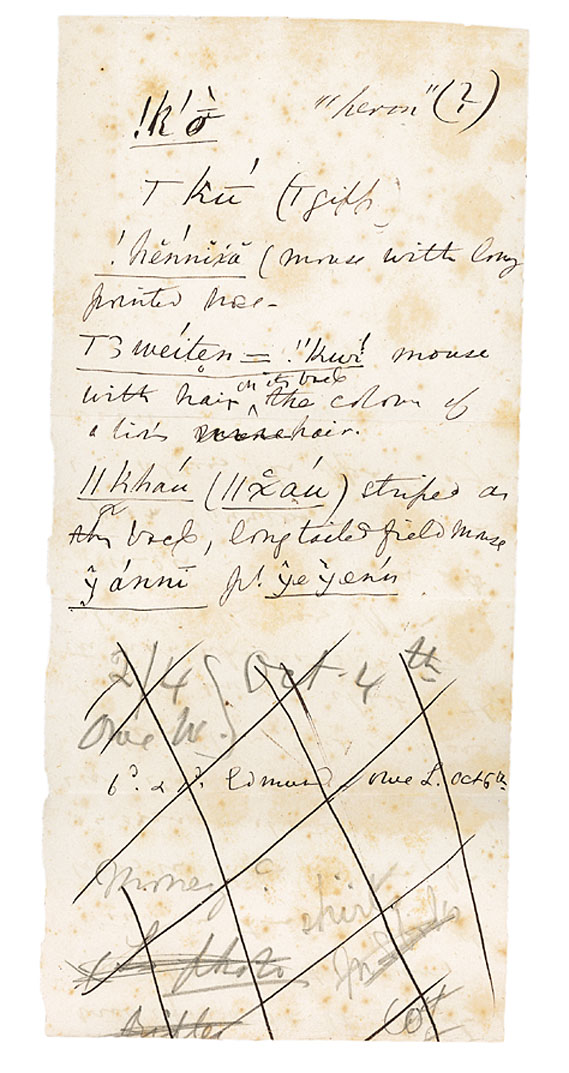 !k'ṑ "'heron" (?)
T kū́ (T giff
!hĕńnĭxă (mouse with long
pointed nose-
T3 wéiten = !'kwi mouse
with hair on its back the colour of
a lion's hair.
||kháú (||x̊áú) striped on
the back, long tailed field mouse
ŷ ánnī pl. ŷe ŷenń
2/4 } Oct. 4th
Owe W.
6d. & Edmund owe L. Oct 6th
Money?
shirt
photo